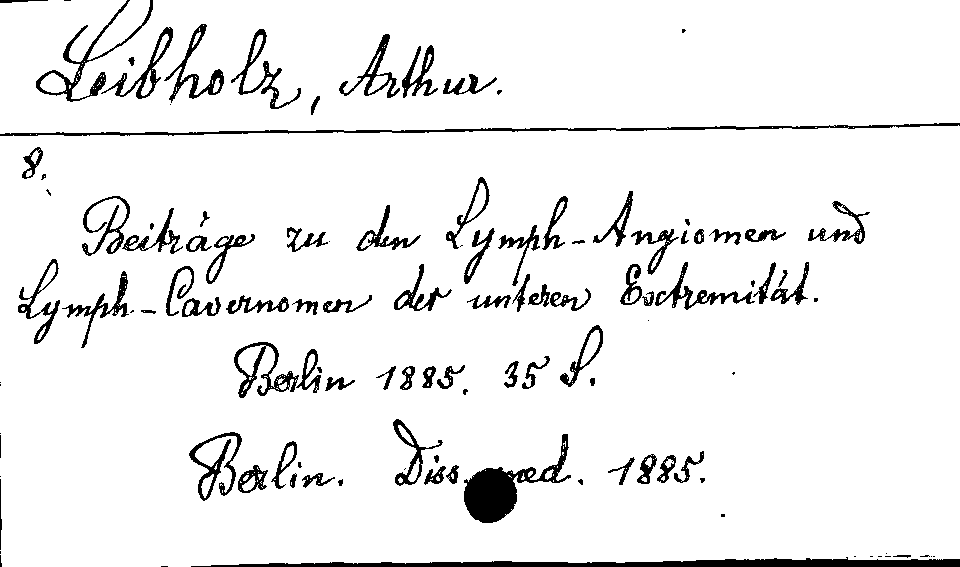 Leibholz, Arthur.
8.
Beiträge zu den Lymph-Angiomen und
Lymph-Cavernomen der unteren Extremität.
Berlin 1885. 35 S.
Berlin. Diss. med. 1885.